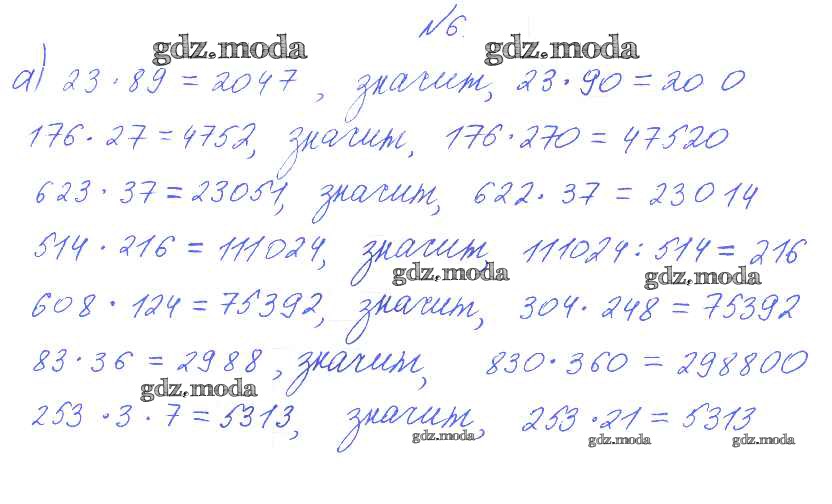 №6.
gdz.moda gdz.moda
а) 23 · 89 = 2047, значит, 23 · 90 = 20 0
176 · 27 = 4752, значит, 176 · 270 = 47520
623 · 37 = 23051, значит, 622 · 37 = 23014
514 · 216 = 111024, значит, 111024 : 514 = 216
gdz.moda gdz.moda
608 · 124 = 75392, значит, 304 · 248 = 75392
83 · 36 = 2988, значит, 830 · 360 = 298800
gdz.moda
253 · 3 · 7 = 5313, значит, 253 · 21 = 5313
gdz.moda gdz.moda gdz.moda